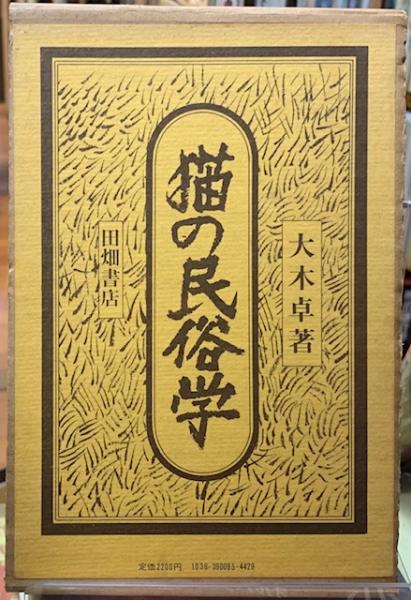 大木卓著
猫の民俗学
田畑書店
定価2200円 1036-390085-4429